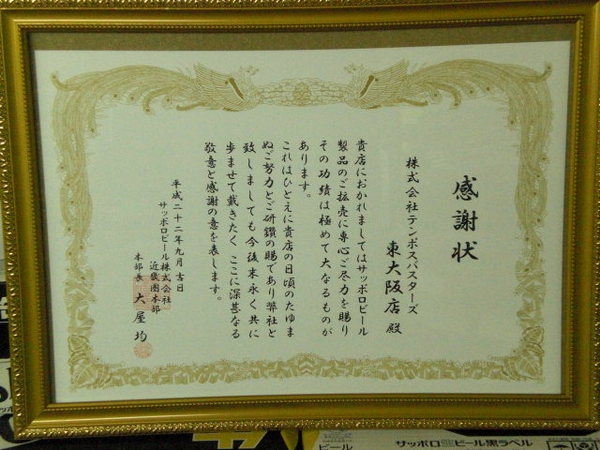 感謝状
株式会社テンポスバスターズ
東大阪店 殿
貴店におかれましてはサッポロビール
製品のご拡売に専心ご尽力を賜り
その功績は極めて大なるものが
あります。
これはひとえに貴店の日頃のたゆま
ぬご努力とご研鑽の賜であり弊社と
致しましても今後末永く共に
歩ませて戴きたくここに深甚なる
敬意と感謝の意を表します。
平成二十二年九月吉日
サッポロビール株式会社
近畿圏本部
本部長 大屋均
サッポロ生ビール黒ラベル
ビール